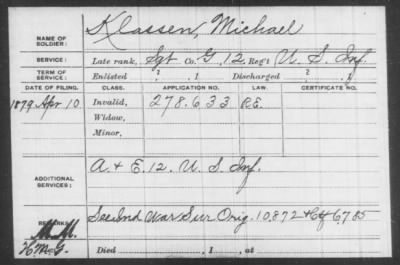 NAME OF SOLDIER: Klassen, Michael
SERVICE: Late rank, Sgt Co. G, 12 Reg't U. S. Inf.
TERM OF SERVICE: Enlisted ?, 1 Discharged ?, 1
DATE OF FILING. CLASS. APPLICATION NO. LAW. CERTIFICATE NO.
1879 Apr 10 Invalid, 278.633 P.E.
Widow,
Minor,
ADDITIONAL SERVICES: A. & E. 12. U. S. Inf.
REMARKS: See Ind War Sur Orig. 10872 & Ctf 6785
M.M.
H.M.G. Died , 1 , at